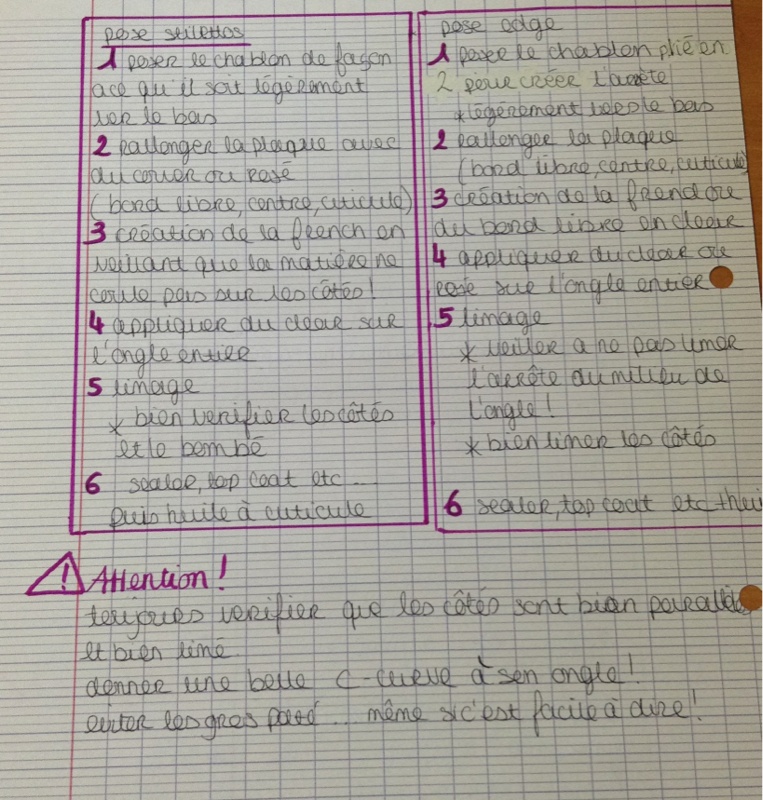 pose stilettos
1 poser le chablon de façon
a ce qu'il soit légèrement
ver le bas
2 rallonger la plaque avec
du cover ou rose
(bord libre, centre, cuticule)
3 création de la french en
veillant que la matière ne
coule pas sur les côtés!
4 appliquer du clear sur
l'ongle entier
5 limage
* bien verifier les côtés
et le bombé
6 sealer, top coat etc...
puis huile à cuticule
pose edge
1 poser le chablon plié en
2 pour créer l'arrête
* légèrement vers le bas
2 rallonger la plaque
(bord libre, centre, cuticule)
3 création de la french ou
du bord libre en clear
4 appliquer du clear ou
rose sur l'ongle entier
5 limage
* veiller a ne pas limer
l'arrête du milieu de
l'ongle!
* bien limer les côtés
6 sealer, top coat etc + hui
! Attention!
toujours verifier que les côtés sont bien
et bien limé.
donner une belle C-curve à son ongle!
eviter les gros paté... même si c'est facile à dire!